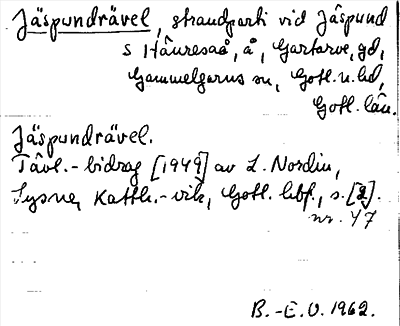 Jäspundrävel, strandparti vid Jäspund
s Hänresaå, å, Gartarve, gd,
Gammelgarns sn, Gotl. n. hd,
Gotl. län.
Jäspundrävel.
Tävl.-bidrag [1949] av L. Nordin,
Sysne, Katth.-vik, Gotl. hbf., s. [2].
nr. 47
B.-E.O. 1962.